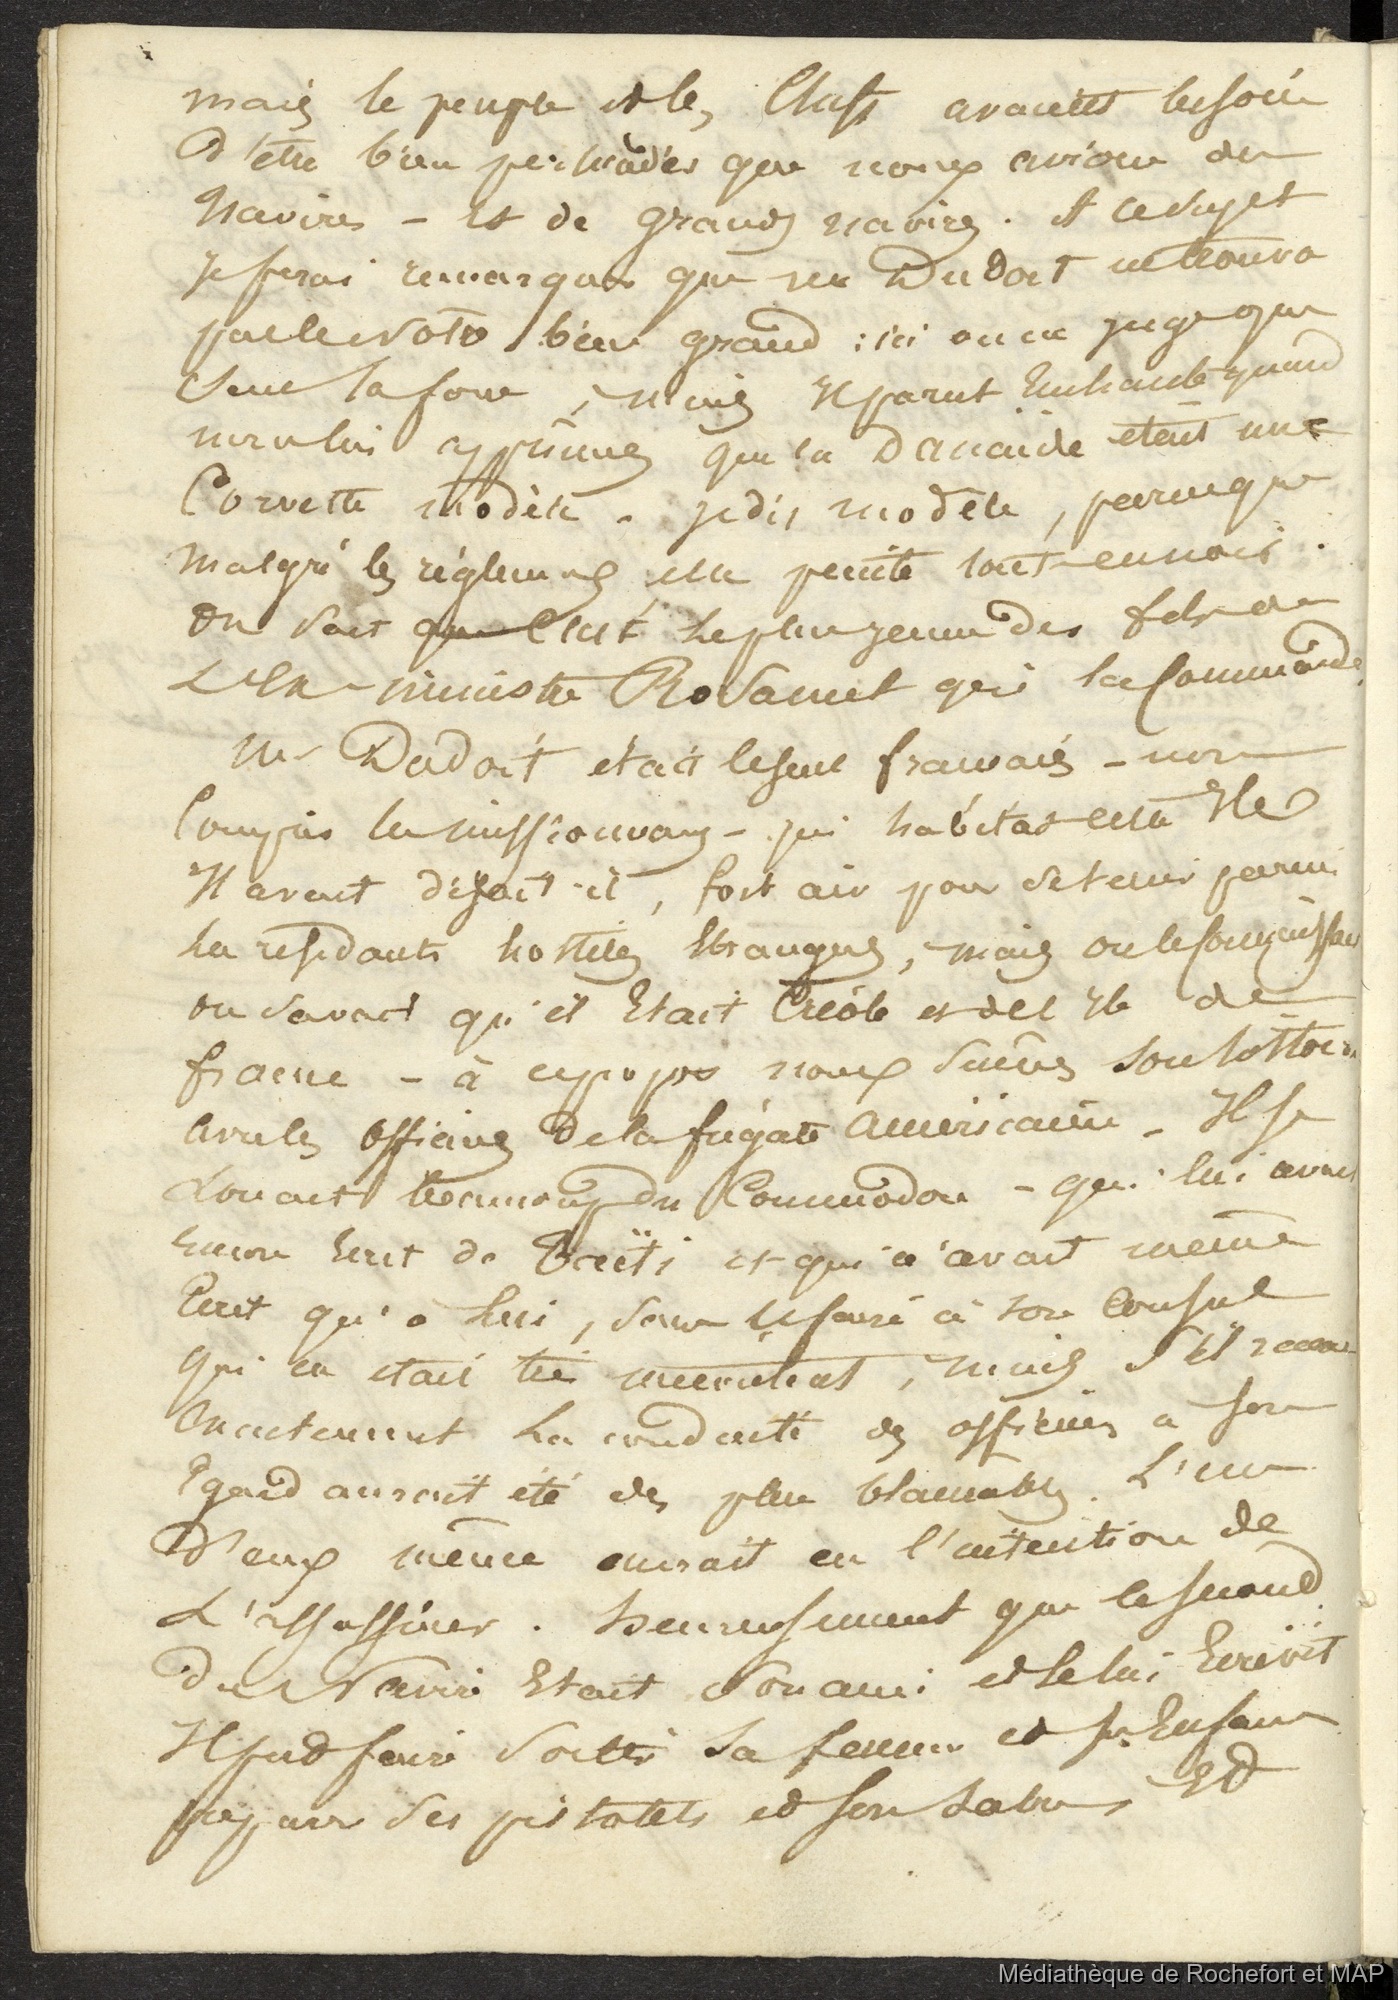 mais le peuple et les Chefs avaient besoin
d'être bien persuadés que nous avions des
Navires - et de grands navires. A ce sujet
je ferai remarquer que Mr Dudoit ne trouva
pas le notre bien grand : ici on ne juge que
sur la force, mais Il parut Enchanté quand
nous lui apprimes que la Danaïde etait une
Corvette modèle. je dis modèle, parceque
malgré les réglemens elle peinte tout en noir.
On sait que C'est le plus jeune des fils de
L'Ex-ministre Rosamel qui la Commande.
Mr Dudoit etait le seul français - non
Compris les missionnaires - qui habitat cette Ile
Il avait disait-il, fort à faire pour se tenir parmi
les résidants hostiles Etrangers, mais on le
on savait qu'il Etait Créole et de l'Ile de
france - à ce propos nous sumes son histoire
avec les Officiers de la frégate américaine - Il se
Louait beaucoup du Commodore - qui lui avait
encore Ecrit de Taïti et qui n'avait même
Ecrit qu'à lui, sans le faire à son Consul
qui en etait très mécontent, mais s'il raconte
Exactement la conduite des officiers a son
Egard aurait été des plus blamables. L'un
D'eux même aurait eu l'intention de
L'assassiner. heureusement que le second
du Navire Etait son ami et le lui Ecrivit
Il put faire sortir sa femme et ses Enfans
préparer ses pistolets et son sabre, Et
Médiathèque de Rochefort et MAP